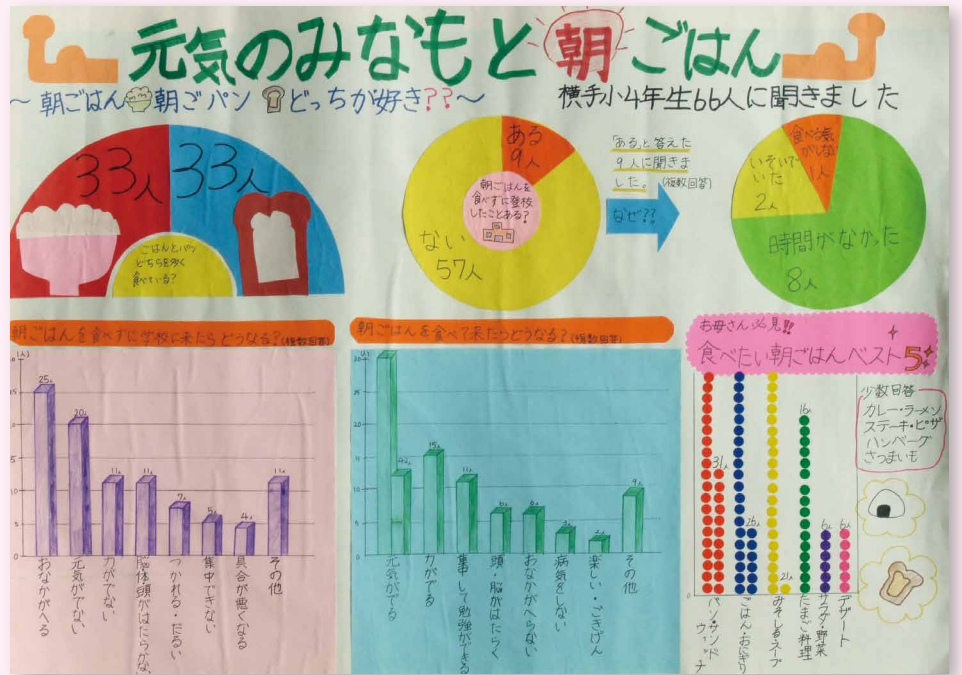 元気のみなもと朝ごはん
～朝ごはん朝ごパンどっちが好き??～
横手小4年生66人に聞きました
33人
33人
ごはんとパン
どちらを多く
食べている？
ある
9人
朝ごはんを
食べずに登校
したことある？
ない
57人
「ある」と答えた
9人に聞きま
した。(複数回答)
なぜ??
食べる気
がしない
1人
いそいで
いた
2人
時間がなかった
8人
朝ごはんを食べずに学校に来たらどうなる？(複数回答)
(人)
25人
20人
11人
11人
7人
5人
4人
11人
おなかがへる
元気がでない
力がでない
脳体頭がはたらかない
つかれる・だるい
集中できない
具合が悪くなる
その他
朝ごはんを食べて来たらどうなる？(複数回答)
(人)
42人
15人
11人
6人
6人
3人
2人
9人
元気がでる
力がでる
集中して勉強ができる
頭・脳がはたらく
おなかがへらない
病気をしない
楽しい・ごきげん
その他
お母さん必見!!
食べたい朝ごはんベスト5
31人
26人
21人
16人
6人
6人
パン・サンドウィッチ
ごはん・おにぎり
みそしる・スープ
たまご料理
サラダ・野菜
デザート
少数回答
カレー・ラーメン
ステーキ・ピザ
ハンバーグ
さつまいも